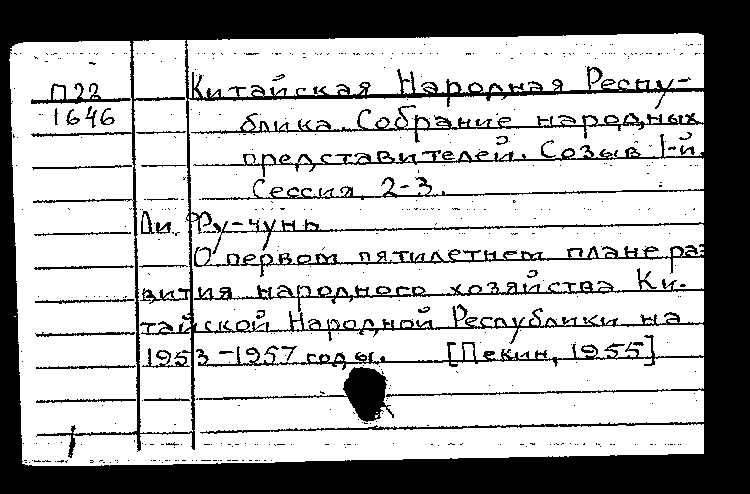 П22 Китайская Народная Респу-
1646 блика. Собрание народных
представителей. Созыв 1-й.
Сессия 2-3.
Ли Фу-чунь
О первом пятилетнем плане раз
вития народного хозяйства Ки-
тайской Народной Республики на
1953-1957 годы. [Пекин, 1955]